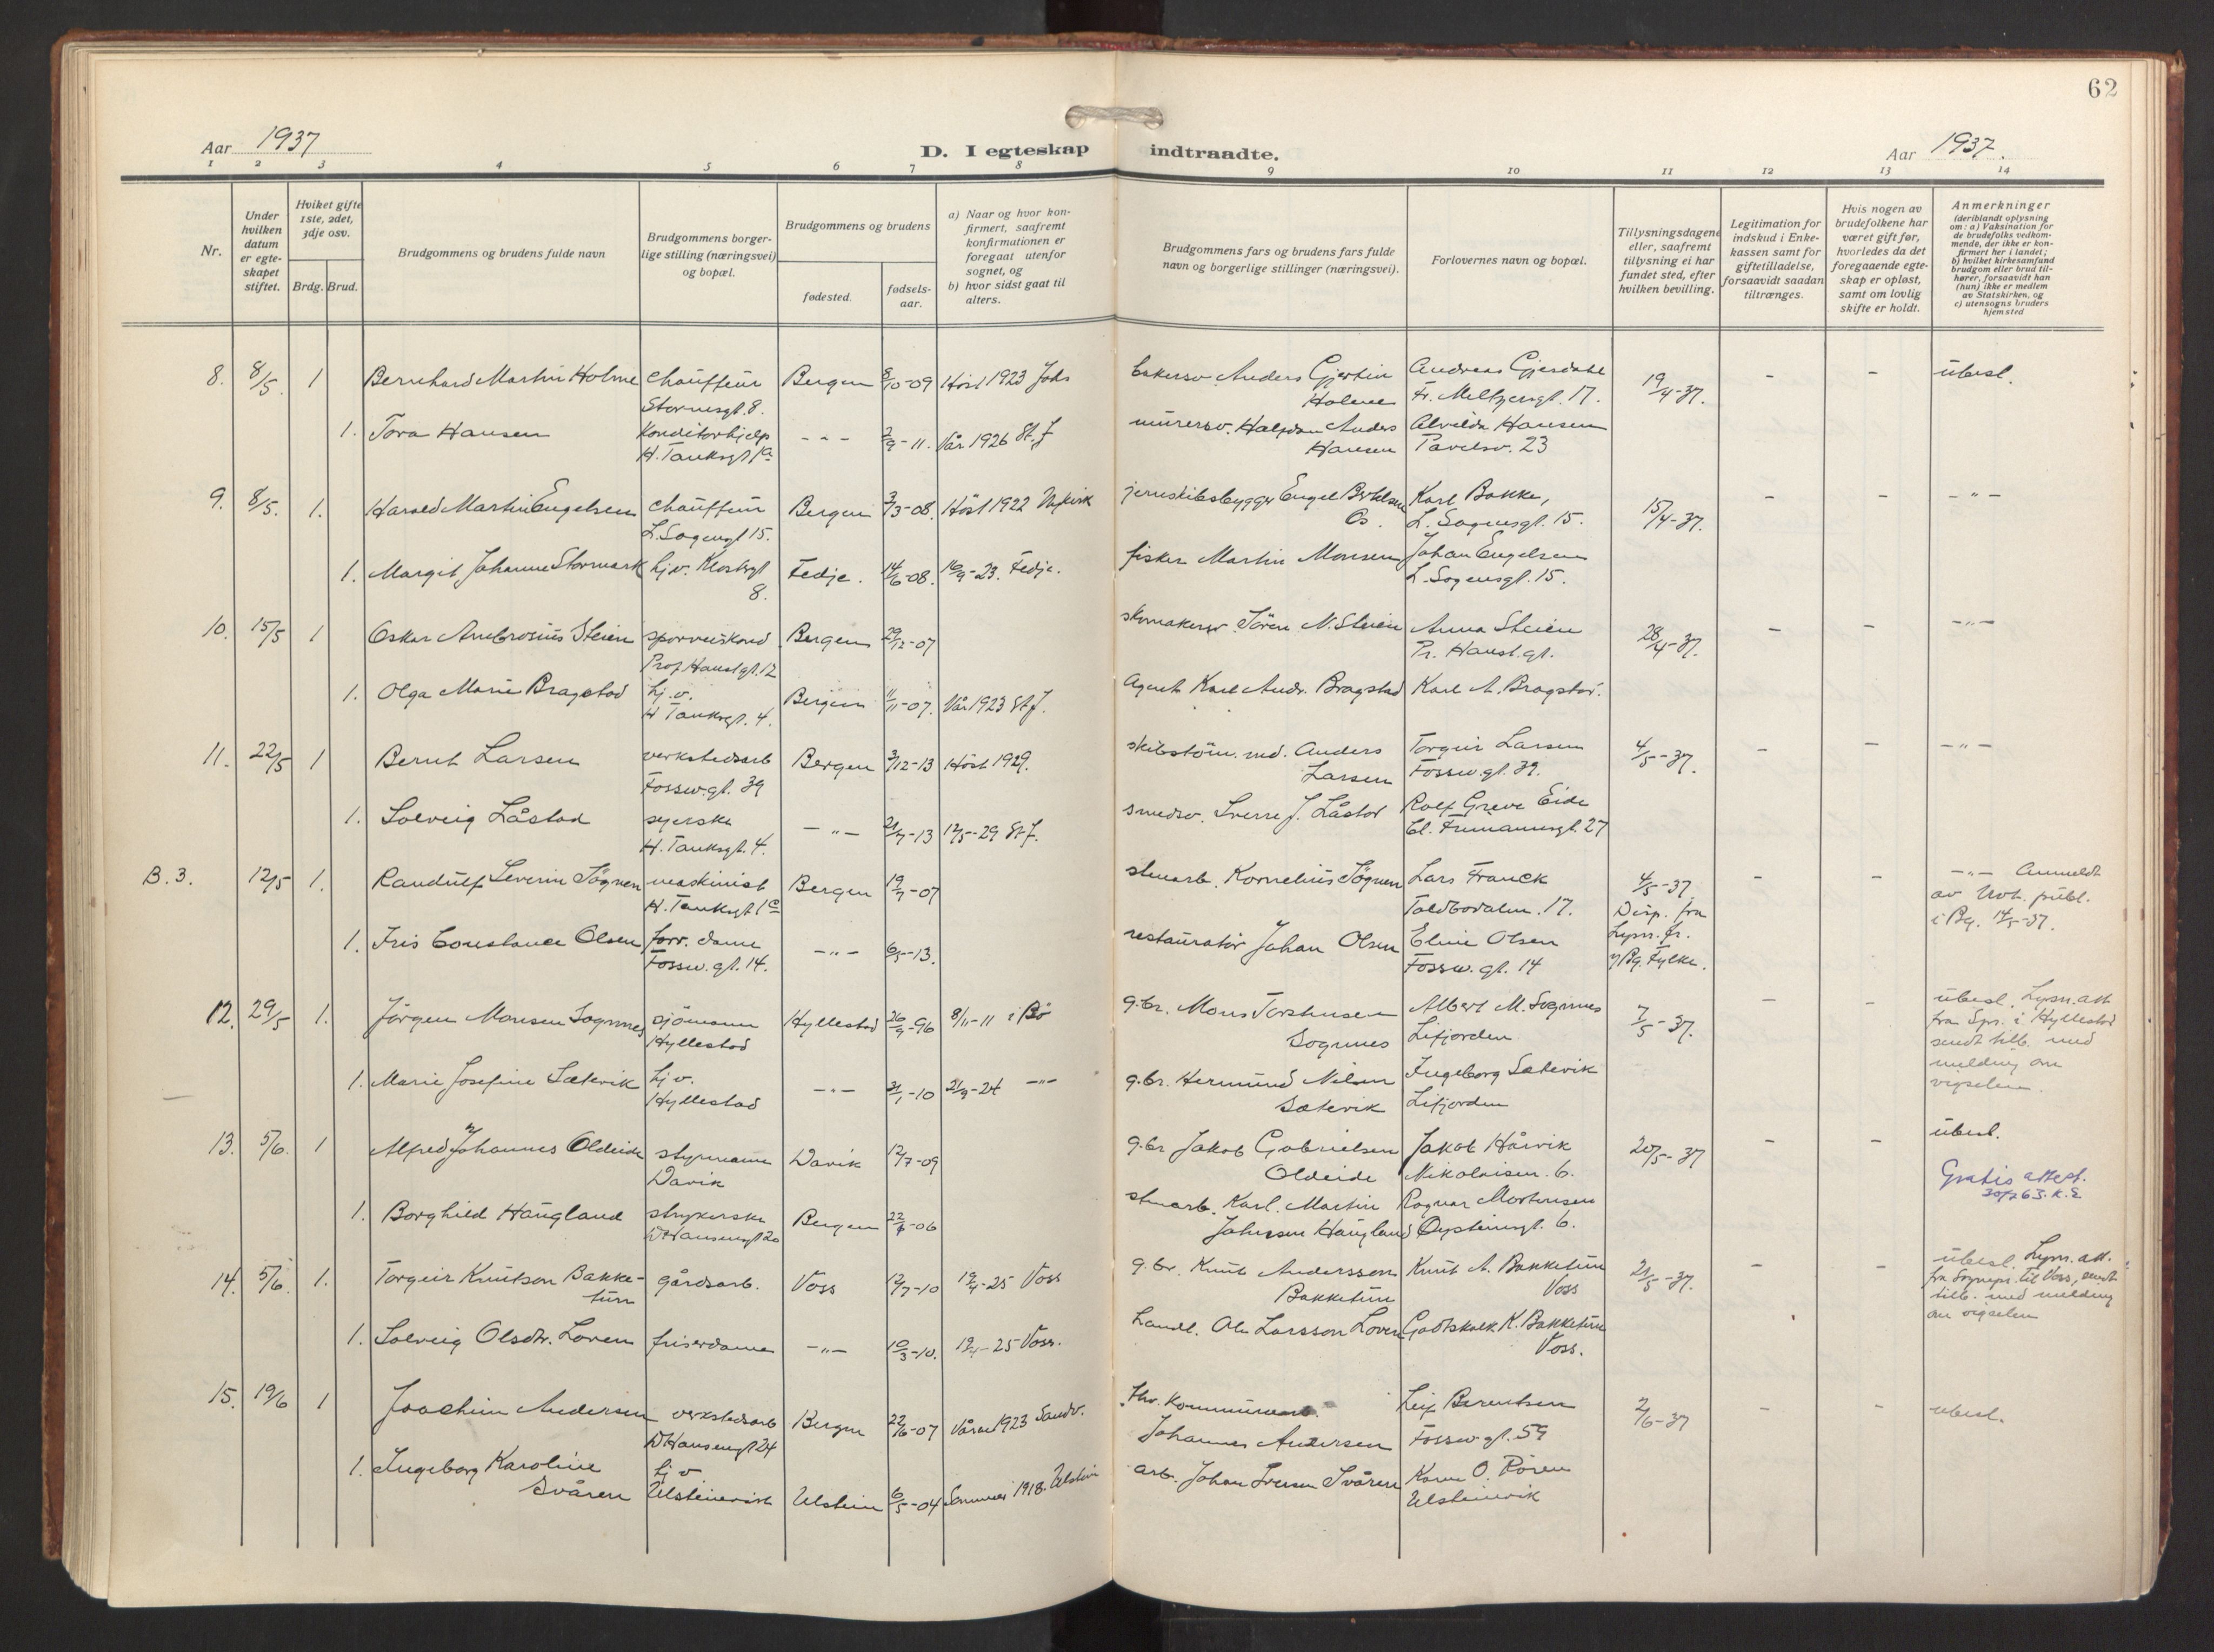 62
Aar 1937
D. I egteskap indtraadte.
Aar 1937.
1 2 3 4 5 6 7 8 9 10 11 12 13 14
Nr.
Under hvilken datum er egteskapet stiftet.
Hvilket gifte 1ste, 2det, 3dje osv.
Brdg. Brud.
Brudgommens og brudens fulde navn
Brudgommens borgerlige stilling (næringsvei) og bopæl.
Brudgommens og brudens
fødested.
fødselsaar.
a) Naar og hvor konfirmert, saafremt konfirmationen er foregaat utenfor sognet, og
b) hvor sidst gaat til alters.
Brudgommens fars og brudens fars fulde navn og borgerlige stillinger (næringsvei).
Forlovernes navn og bopæl.
Tillysningsdagene eller, saafremt tillysning ei har fundet sted, efter hvilken bevilling.
Legitimation for indskud i Enkekassen samt for giftetilladelse, forsaavidt saadan tiltrænges.
Hvis nogen av brudefolkene har været gift før, hvorledes da det foregaaende egteskap er opløst, samt om lovlig skifte er holdt.
Anmerkninger
(deriblandt oplysning om: a) Vaksination for de brudefolks vedkommende, der ikke er konfirmert her i landet; b) hvilket kirkesamfund brudgom eller brud tilhører, forsaavidt han (hun) ikke er medlem av Statskirken, og c) utensogns bruders hjemsted
8. 8/5. 1 Bernhard Martin Holme chauffeur Bergen 8/10-09 Höst 1923 Johs Anders Gjertin Andreas Gjerdahl 19/4-37. - - übesl.
Stormsgt. 8. Holme Fr. Meltzersgt. 17.
1. Tora Hansen Konditorhjelp - " - 2/9-11. Vår 1926 St. J mürersv. Halfdan Anders Alvilda Hansen
H. Tanksgt 1a Hansen Tavelsv. 23
9. 8/5. 1. Harald Martin Engelsen chauffeur Bergen 3/3-08. Höst 1922 Nykirk jernskibsbygger Engel Karl Bakke, 15/4-37. - - - " -
L. Sagensgt 15. Os. L. Sagensgt. 15.
1. Margit Johanne Stormark hj.v. Klostergt Fedje. 14/6-08. 16/9-23. Fedje. fisker Martin Monsen Johan Engelsen
8. L. Sagensgt. 15.
10. 15/5 1 Oskar Ambrosius Steien sporveiskond Bergen 29/12-07 skomakersv. Sören N. Steien Anna Steien 28/4-37. - - - " -
Prof Hanstgt. 12 Pr. Hanst. gt.
1. Olga Marie Bragstad hj.v. Bergen 11/11-07. Vår 1923 St J. Agent Karl Andr. Bragstad Karl A. Bragstad.
H Tanksgt. 4.
11. 22/5 1 Bernt Larsen verkstedsarb Bergen 3/12-13 Höst 1929. skibstöm. Anders Torgeir Larsen 4/5-37. - - - " -
Fossw.gt. 39 Larsen Fossw.gt. 39.
1. Solveig Låstad syerske - " - 21/7-13 12/5-29 St J. smedsv. Sverre J. Låstad Rolf Greve Eide
H. Tanksgt. 4. Cl. Frimannsgt. 27
B. 3. 12/5 1. Randulf Severin Sögnen maskinist Bergen 19/7-07 stuarb. Kornelius Sögnen Lars Franck 4/5-37. - - - " - Anmeldt
H. Tanksgt 1c Toldbodalm. 17. Disp. fra av Utv. publ.
lysn. fr. i Bg. 14/5-37.
1. Iris Constance Olsen forr. dame - " - 6/5-13. restauratör Johan Olsen Eline Olsen
Fossw. gt. 14. Fossw. gt. 14 Bg. Fylke.
12. 29/5 1. Jörgen Monsen Sognnes sjömann Hyllestad 26/9-96 8/11-11 i Bö g.br. Mons Torstensen Albert M. Sognnes 7/5-37. - - übesl. Lysn. att
Hyllestad Sognnes Lifjorden fra Spr. i Hyllestad
sendt tilb. med
melding om
vigselen.
1. Marie Josefine Sætevik hj v. - " - 3/1-10 21/9-24 - " - g.br. Hermund Nilsen Ingeborg Sætevik
Hyllestad Sætevik Lifjorden
13. 5/6. 1 Alfred Johannes Oldeide styrmann Davik 12/7-09 g.br Jakob Gabrielsen Jakob Hårvik 20/5-37 - - übesl.
Davik Oldeide Nikolaisen. 6. Gratis attest.
30/7 63. K.E
1. Borghild Haugland strykerske Bergen 22/1-06 stuarb. Karl. Martin Ragnar Mortensen
D Hansensgt 20 Johnsen Haugland Öysteinsgt. 6.
14. 5/6. 1. Torgeir Knutson Bakke- gårdsarb. Voss 12/7-10 19/4-25 Voss g.br. Knut Andersson Knut A. Bakketun 21/5-37. - - übesl. Lysn. att.
tun Bakketun Voss fra Sognepr. til Voss, sendt
tilb. med melding
om vigselen
1. Solveig Olsdtr. Loven friserdame - " - 10/3-10. 19/4-25 Voss. handl. Ole Larsson Loven Godtskalk K. Bakketun
Voss.
15. 19/6 1 Joachim Andersen verkstedsarb Bergen 22/6-07 Våren 1923 Sandv. fhv. Kommunearb. Leif Berentsen 2/6-37 - - übesl.
D Hansensgt 24 Johannes Andersen Fossw. gt. 59
1. Ingeborg Karoline hj v Ulstein 6/5-04 Sommer 1918. Ulstein arb. Johan Iversen Svåren Karen O. Rören
Svåren Ulsteinvik Ulsteinvik